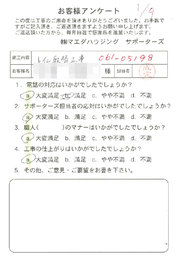 1/9
お客様アンケート
この度は工事のご用命を頂きありがとうございました。お手数で
すがご記入頂き、ご返送頂きますようお願い申し上げます。
㈱マエダハウジング サポーターズ
工事内容 トイレ取替工事 061-05198
お客様名 様 担当者名
1. 電話の対応はいかがでしたでしょうか？
a 大変満足 b 満足 c やや不満 d 不満
2. サポーターズ担当者の応対はいかがでしたでしょうか？
a 大変満足 b 満足 c やや不満 d 不満
3. 職人( )のマナーはいかがでしたでしょうか？
a 大変満足 b 満足 c やや不満 d 不満
4. 工事の仕上がりはいかがでしたでしょうか？
a 大変満足 b 満足 c やや不満 d 不満
5. その他、ご意見・ご要望をお書き下さい。